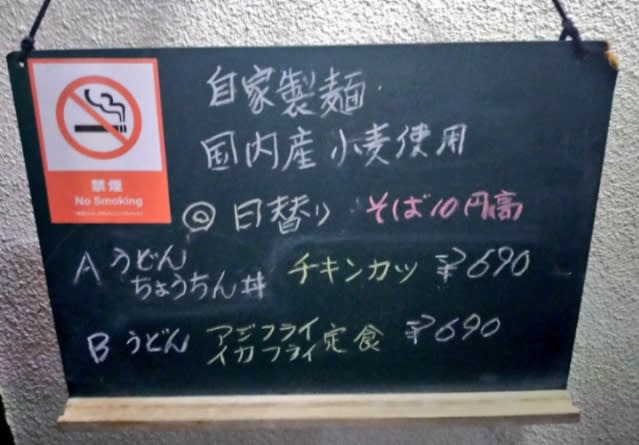 自家製麺
国内産小麦使用
禁煙
No Smoking
◎ 日替り そば10円高
A うどん
ちょうちん丼 チキンカツ ¥690
B うどん アジフライ
イカフライ 定食 ¥690